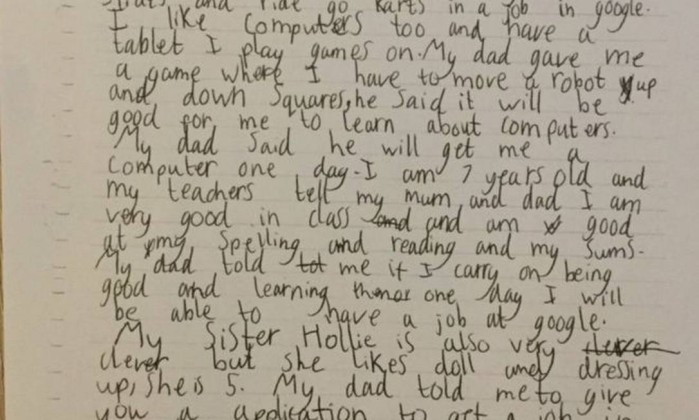 and ride go karts in a job in google.
I like computers too and have a
tablet I play games on. My dad gave me
a game where I have to move a robot up
and down squares, he said it will be
good for me to learn about computers.
My dad said he will get me a
computer one day. I am 7 years old and
my teachers tell my mum and dad I am
very good in class and and am good
at my spelling and reading and my sums.
My dad told tot me if I carry on being
good and learning one day I will
be able to have a job at google.
My sister Hollie is also very clever
clever but she likes doll and dressing
up, she is 5. My dad told me to give
you a aplication to get a job in